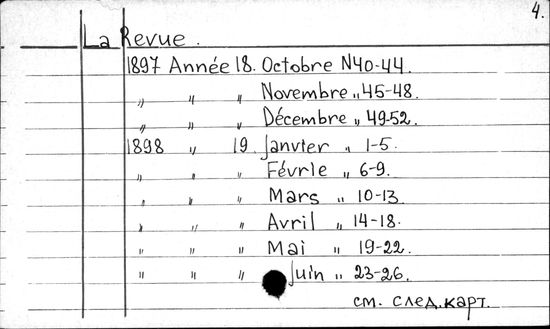 4.
La Revue.
1897 Année 18. Octobre N40-44.
„ „ „ Novembre „ 45-48.
„ „ „ Décembre „ 49-52.
1898 „ 19. Janvier „ 1-5.
„ „ „ Févrle „ 6-9.
„ „ „ Mars „ 10-13.
„ „ „ Avril „ 14-18.
„ „ „ Mai „ 19-22.
„ „ „ Juin „ 23-26.
см. след. карт.